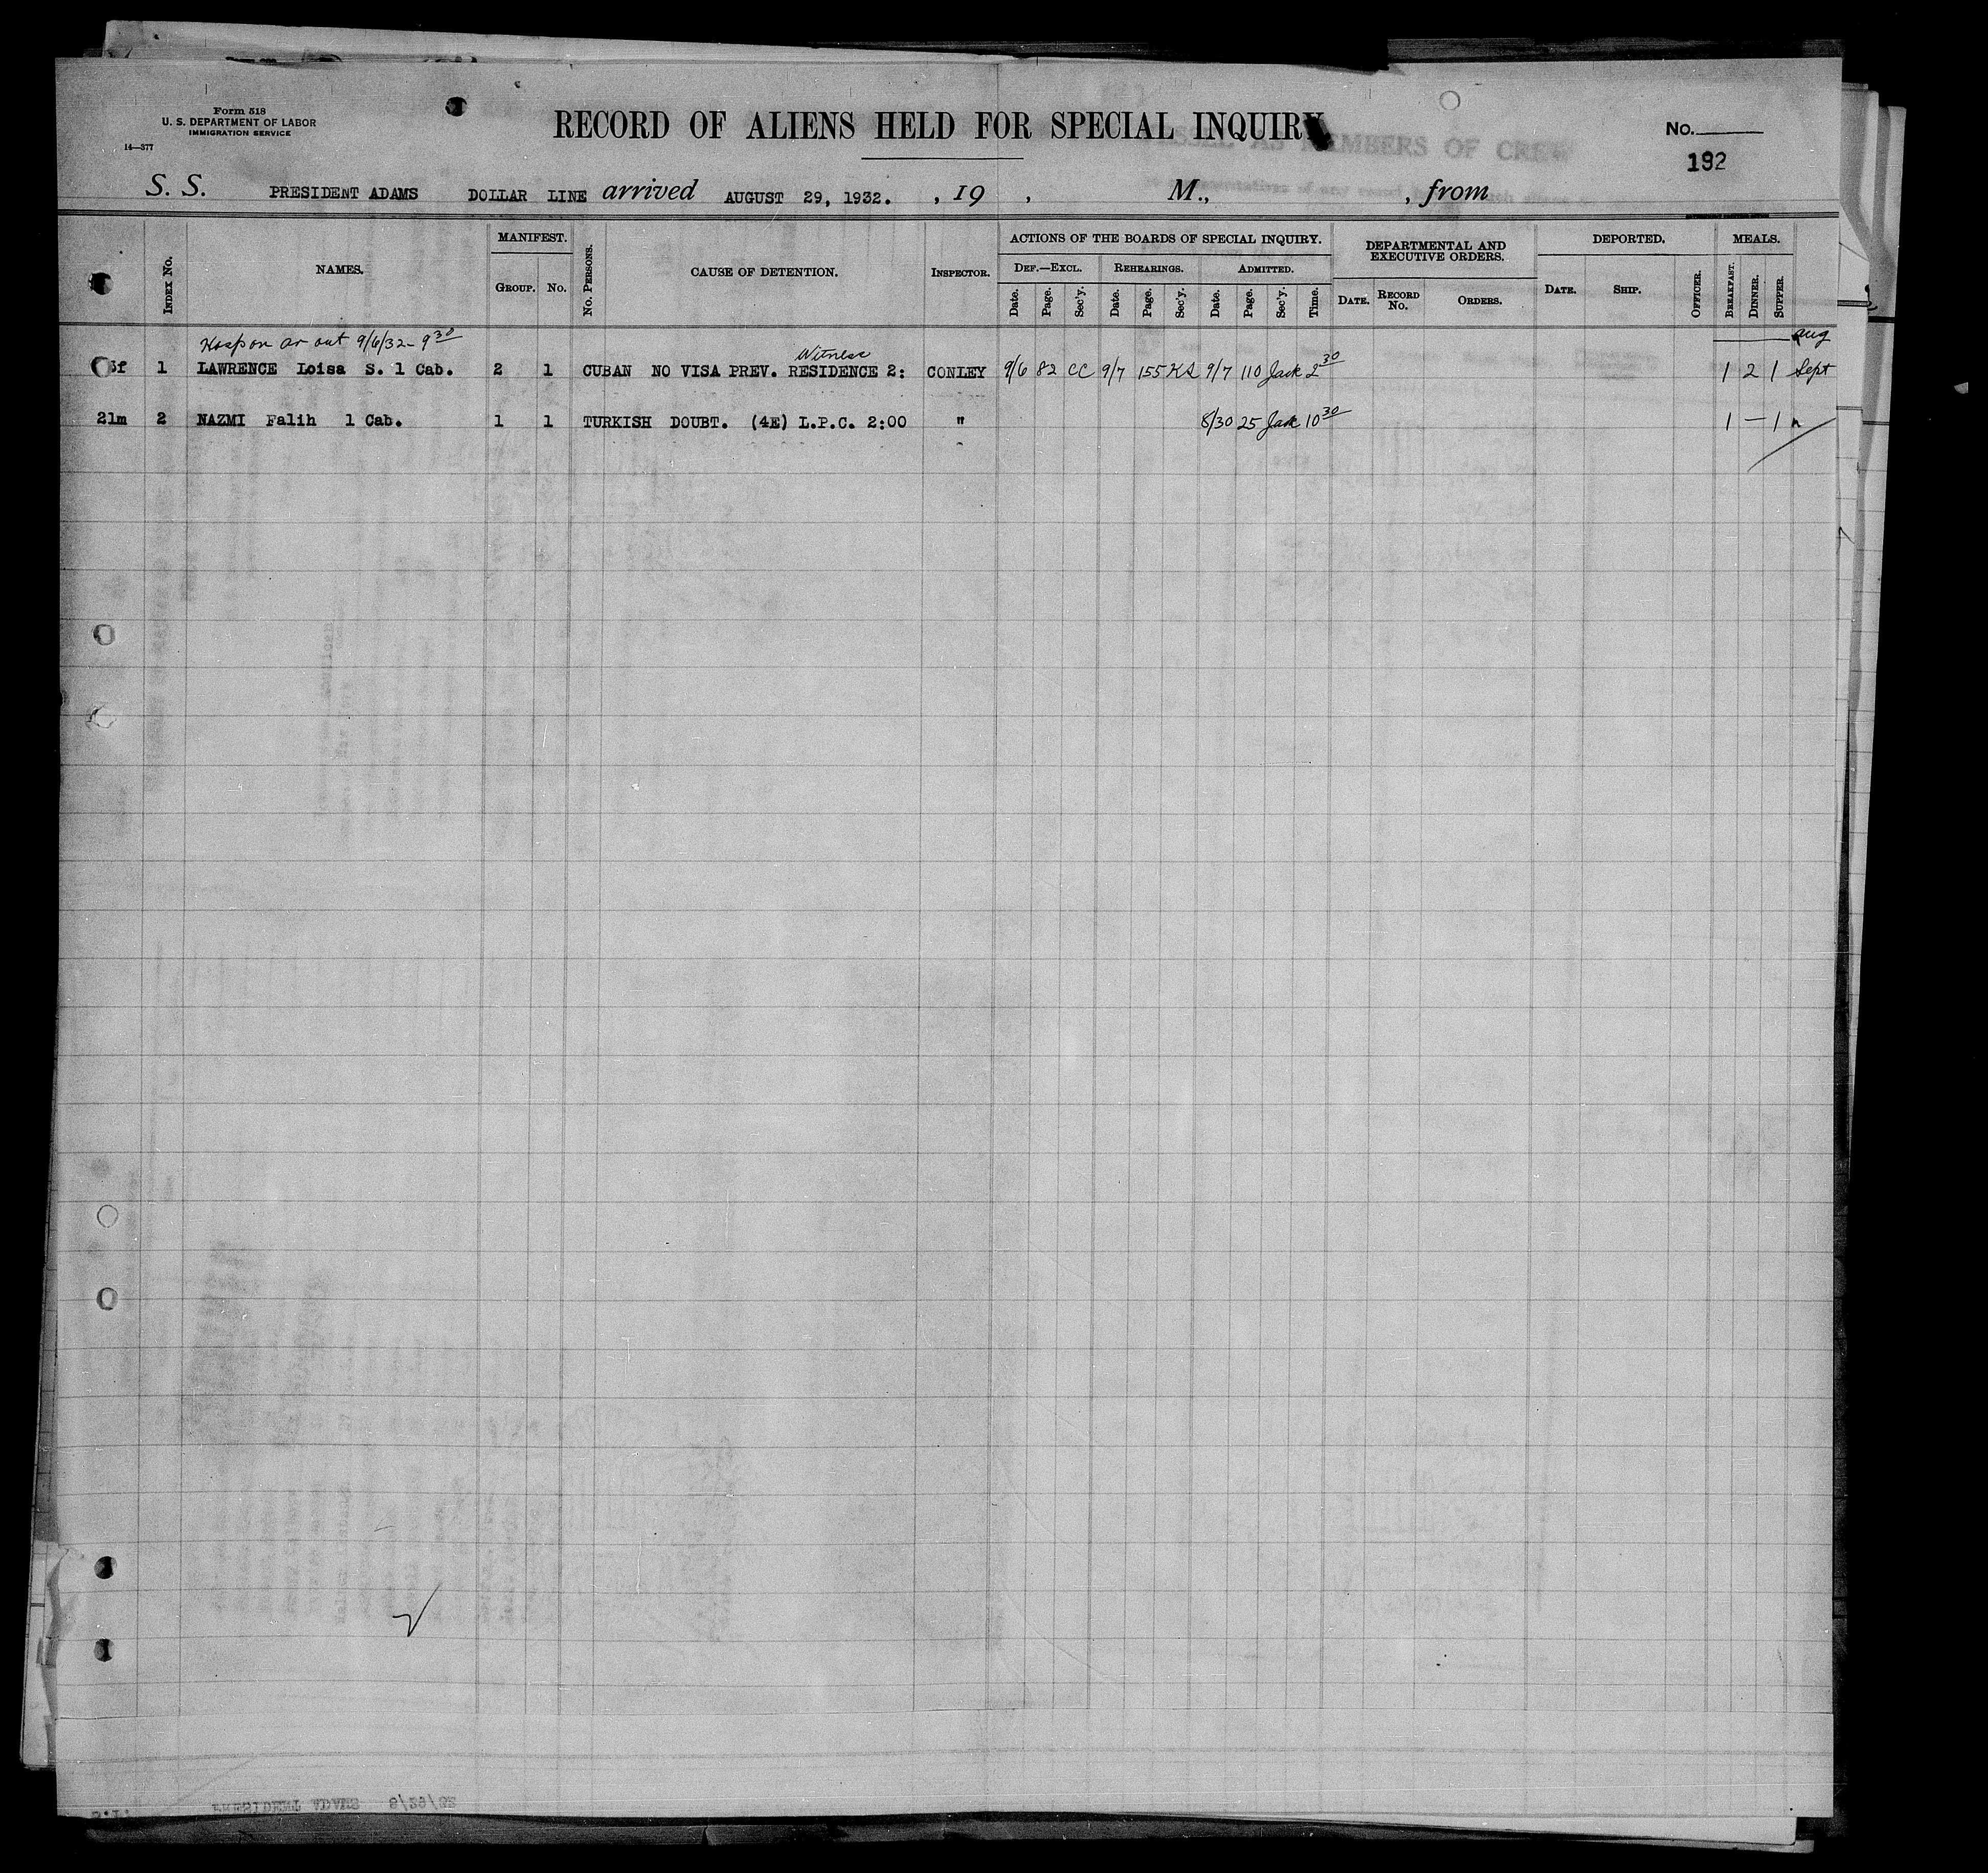 Form 518
U. S. DEPARTMENT OF LABOR
IMMIGRATION SERVICE
14—377
RECORD OF ALIENS HELD FOR SPECIAL INQUIRY
No.
192
S. S. PRESIDENT ADAMS DOLLAR LINE arrived AUGUST 29, 1932. , 19 , M., , from
INDEX No. NAMES. MANIFEST. GROUP. No. No. PERSONS. CAUSE OF DETENTION. INSPECTOR. ACTIONS OF THE BOARDS OF SPECIAL INQUIRY. DEF.—EXCL. Date. Page. Sec'y. REHEARINGS. Date. Page. Sec'y. ADMITTED. Date. Page. Sec'y. Time. DEPARTMENTAL AND EXECUTIVE ORDERS. DATE. RECORD No. ORDERS. DEPORTED. DATE. SHIP. OFFICER. MEALS. BREAKFAST. DINNER. SUPPER.
Hosp on ar out 9/6/32 - 9 30 Witness Aug
f 1 LAWRENCE Loisa S. 1 Cab. 2 1 CUBAN NO VISA PREV. RESIDENCE 2: CONLEY 9/6 82 CC 9/7 155 KS 9/7 110 Jack 2 30 1 2 1 Sept
21m 2 NAZMI Falih 1 Cab. 1 1 TURKISH DOUBT. (4E) L.P.C. 2:00 " 8/30 25 Jack 10 30 1 — 1
PRESIDENT ADAMS 8/29/32